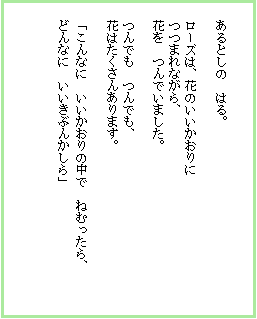 あるとしの　はる。
ローズは、花のいいかおりに
つつまれながら、
花を　つんでいました。
つんでも　つんでも、
花はたくさんあります。
「こんなに　いいかおりの中で　ねむったら、
どんなに　いいきぶんかしら」